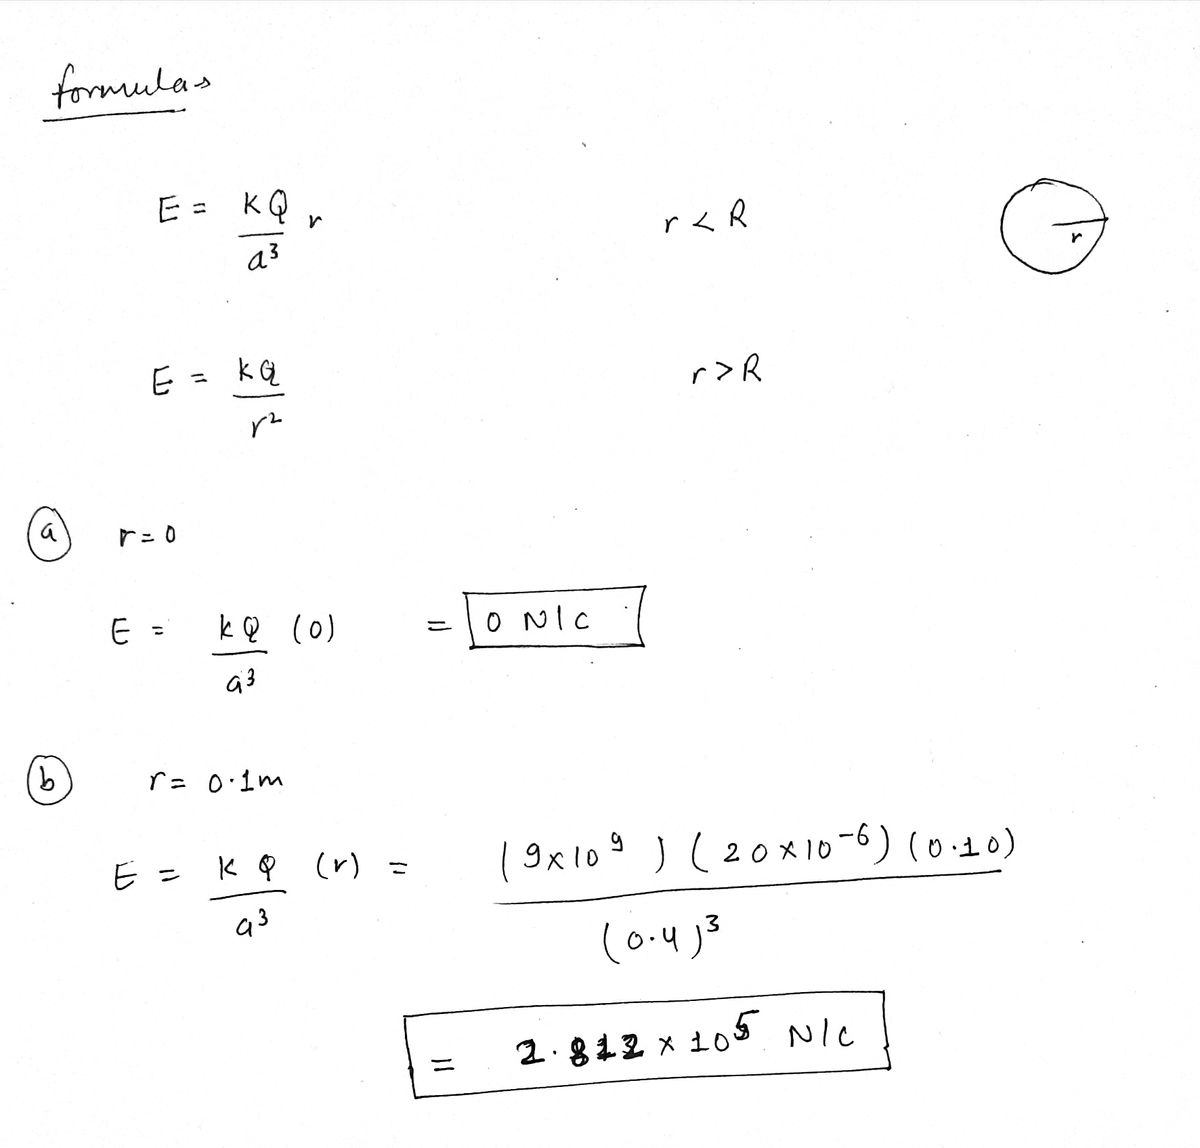 formulas
E = kQ/a³ r    r < R    r
E = kQ/r²    r > R
(a) r = 0
E = kQ/a³ (0) = 0 N/C
(b) r = 0.1m
E = kQ/a³ (r) = (9×10⁹)(20×10⁻⁶)(0.10)/(0.4)³
= 2.812 × 10⁵ N/C